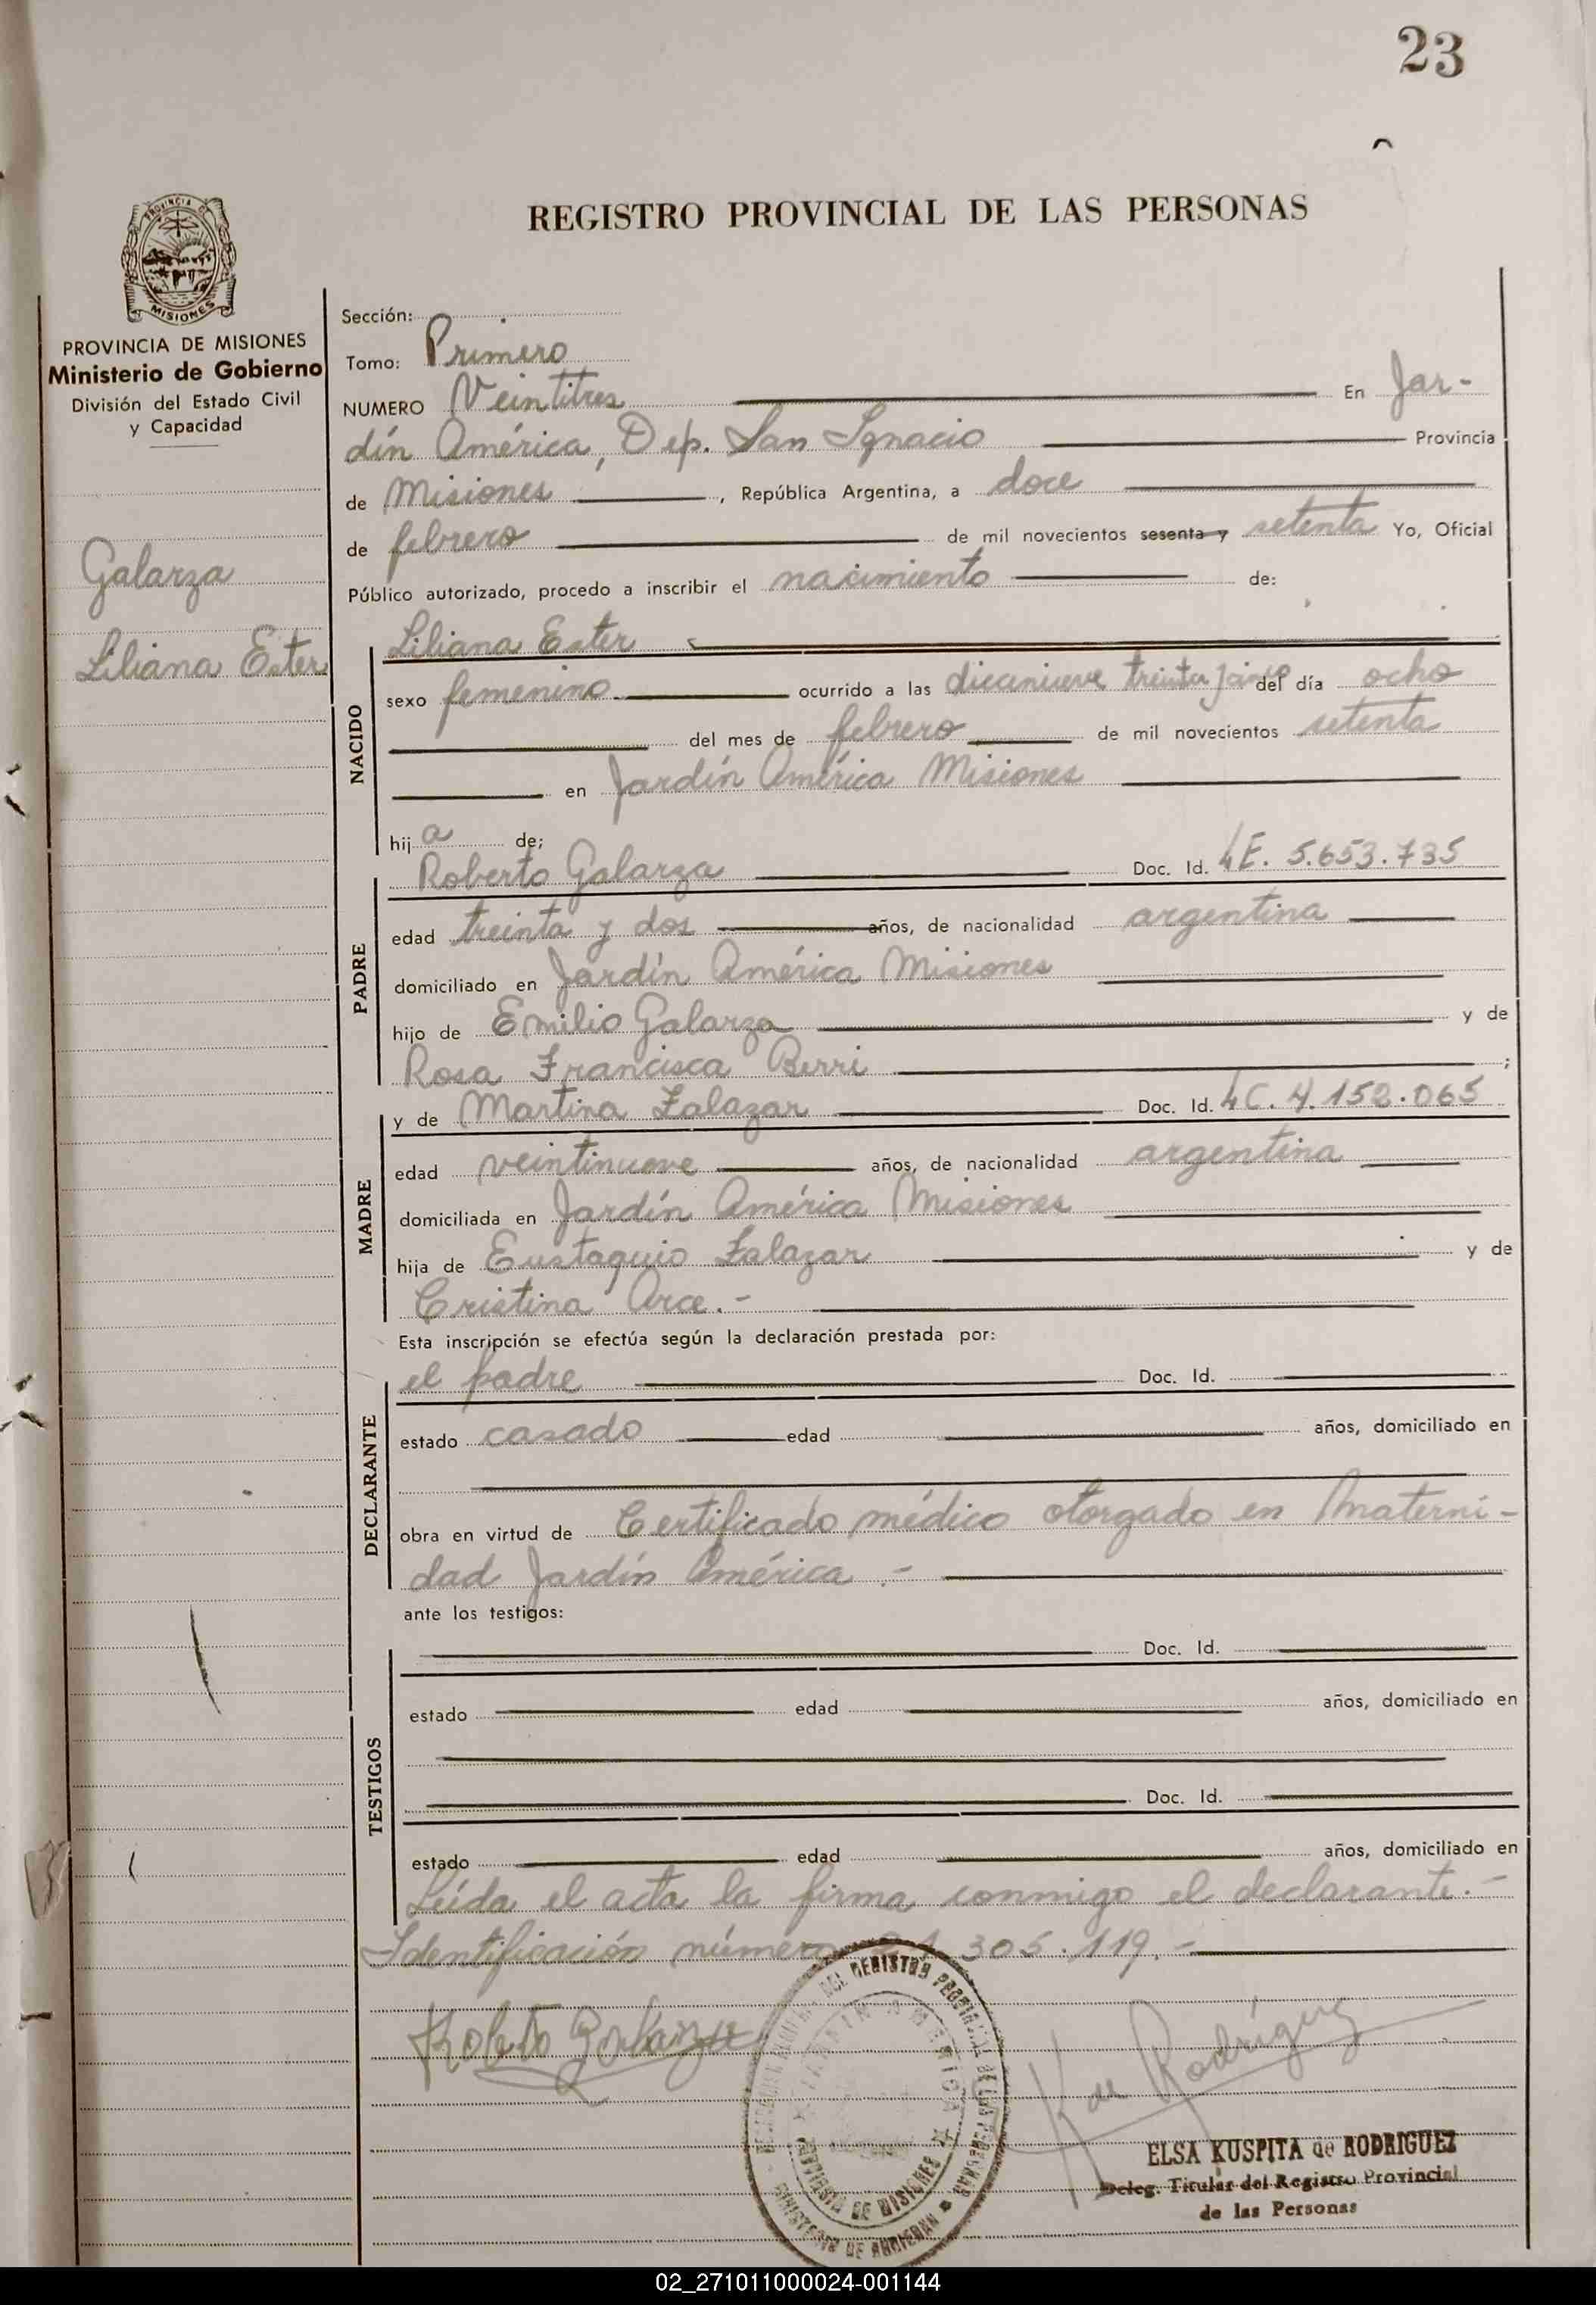 23
REGISTRO PROVINCIAL DE LAS PERSONAS
PROVINCIA DE MISIONES
Ministerio de Gobierno
División del Estado Civil
y Capacidad
Galarza
Liliana Ester
Sección:
Tomo: Primero
NUMERO Veintitres En Jar-
dín América, Dep. San Ignacio Provincia
de Misiones, República Argentina, a doce
de febrero de mil novecientos sesenta y setenta Yo, Oficial
Público autorizado, procedo a inscribir el nacimiento de:
NACIDO
Liliana Ester
sexo femenino ocurrido a las diecinueve treinta y cinco del día ocho
del mes de febrero de mil novecientos setenta
en Jardín América Misiones
hija de;
PADRE
Roberto Galarza Doc. Id. LE. 5.653.735
edad treinta y dos años, de nacionalidad argentina
domiciliado en Jardín América Misiones
hijo de Emilio Galarza y de
Rosa Francisca Berri ;
MADRE
y de Martina Zalazar Doc. Id. LC. 4.152.065
edad veintinueve años, de nacionalidad argentina
domiciliada en Jardín América Misiones
hija de Eustaquio Zalazar y de
Cristina Arce.-
Esta inscripción se efectúa según la declaración prestada por:
DECLARANTE
el padre Doc. Id.
estado casado edad años, domiciliado en
obra en virtud de Certificado médico otorgado en Materni-
dad Jardín América.-
ante los testigos:
TESTIGOS
Doc. Id.
estado edad años, domiciliado en
Doc. Id.
estado edad años, domiciliado en
Leída el acta la firma conmigo el declarante.-
Identificación número 21.305.119.-
Roberto Galarza
K de Rodríguez
ELSA KUSPITA de RODRIGUEZ
Deleg. Titular del Registro Provincial
de las Personas
02_271011000024-001144